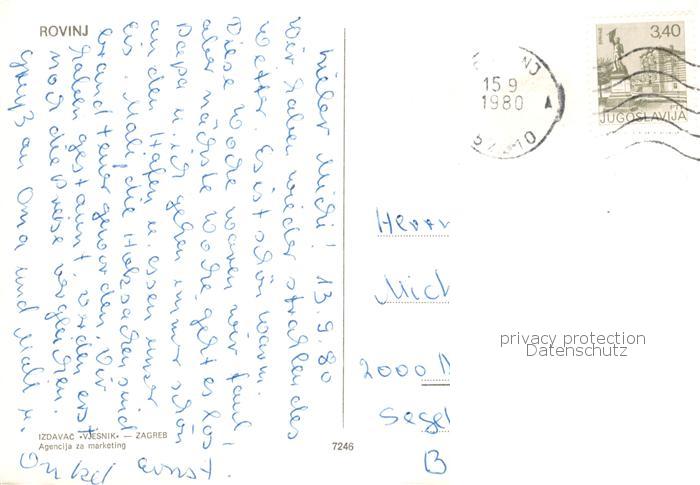 ROVINJ
Lieber Michi! 13.9.80
Wir haben wieder strahlendes
Wetter. Es ist schön warm.
Diese Woche waren wir faul!
aber nächste Woche geht es los
Papa u. ich gehen immer schön
an den Hafen u. essen unser
Eis. Mali, die Holzsachen sind
brand teuer geworden. Wir
haben gestaunt, werden erst
noch die Preise vergleichen.
Gruß an Oma und Mali u.
Onkel Ernst
IZDAVAČ •VJESNIK• — ZAGREB
Agencija za marketing
7246
15 9
1980
3,40
JUGOSLAVIJA
Herrn
Mich
2000
Segel
B
privacy protection
Datenschutz